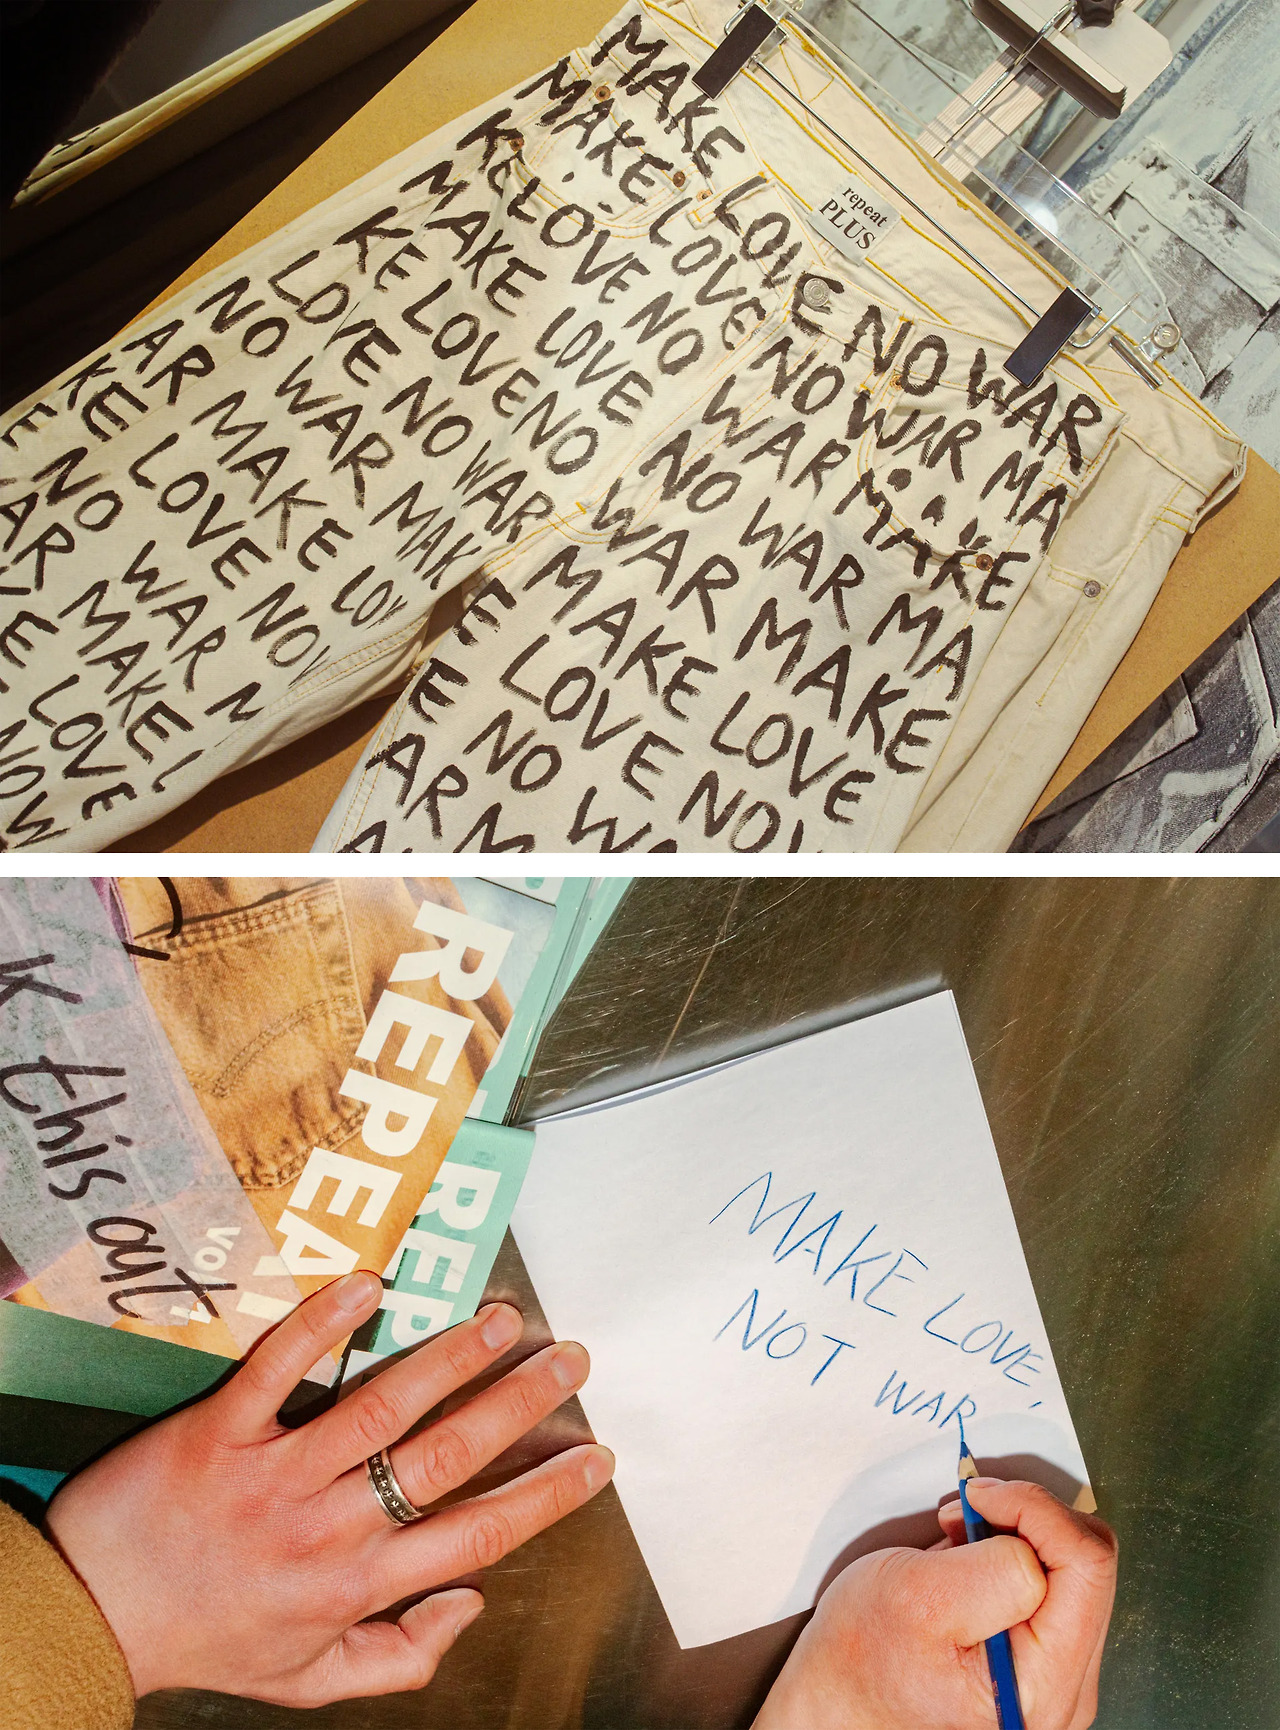 MAKE LOVE NO WAR
MAKE LOVE NO WAR MA
KE LOVE NO WAR MAKE
MAKE LOVE NO WAR MA
KE LOVE NO WAR MAKE
LOVE NO WAR MAKE LOVE
NO WAR MAK E LOVE NOW
AR MAKE LOV E NO WA
KE LOVE NOW AR M
E NO WAR
AR MAKE L
E LOVE
NOW
repeat
PLUS
this out
REPEAT
VOL.1
REPE
MAKE LOVE,
NOT WAR